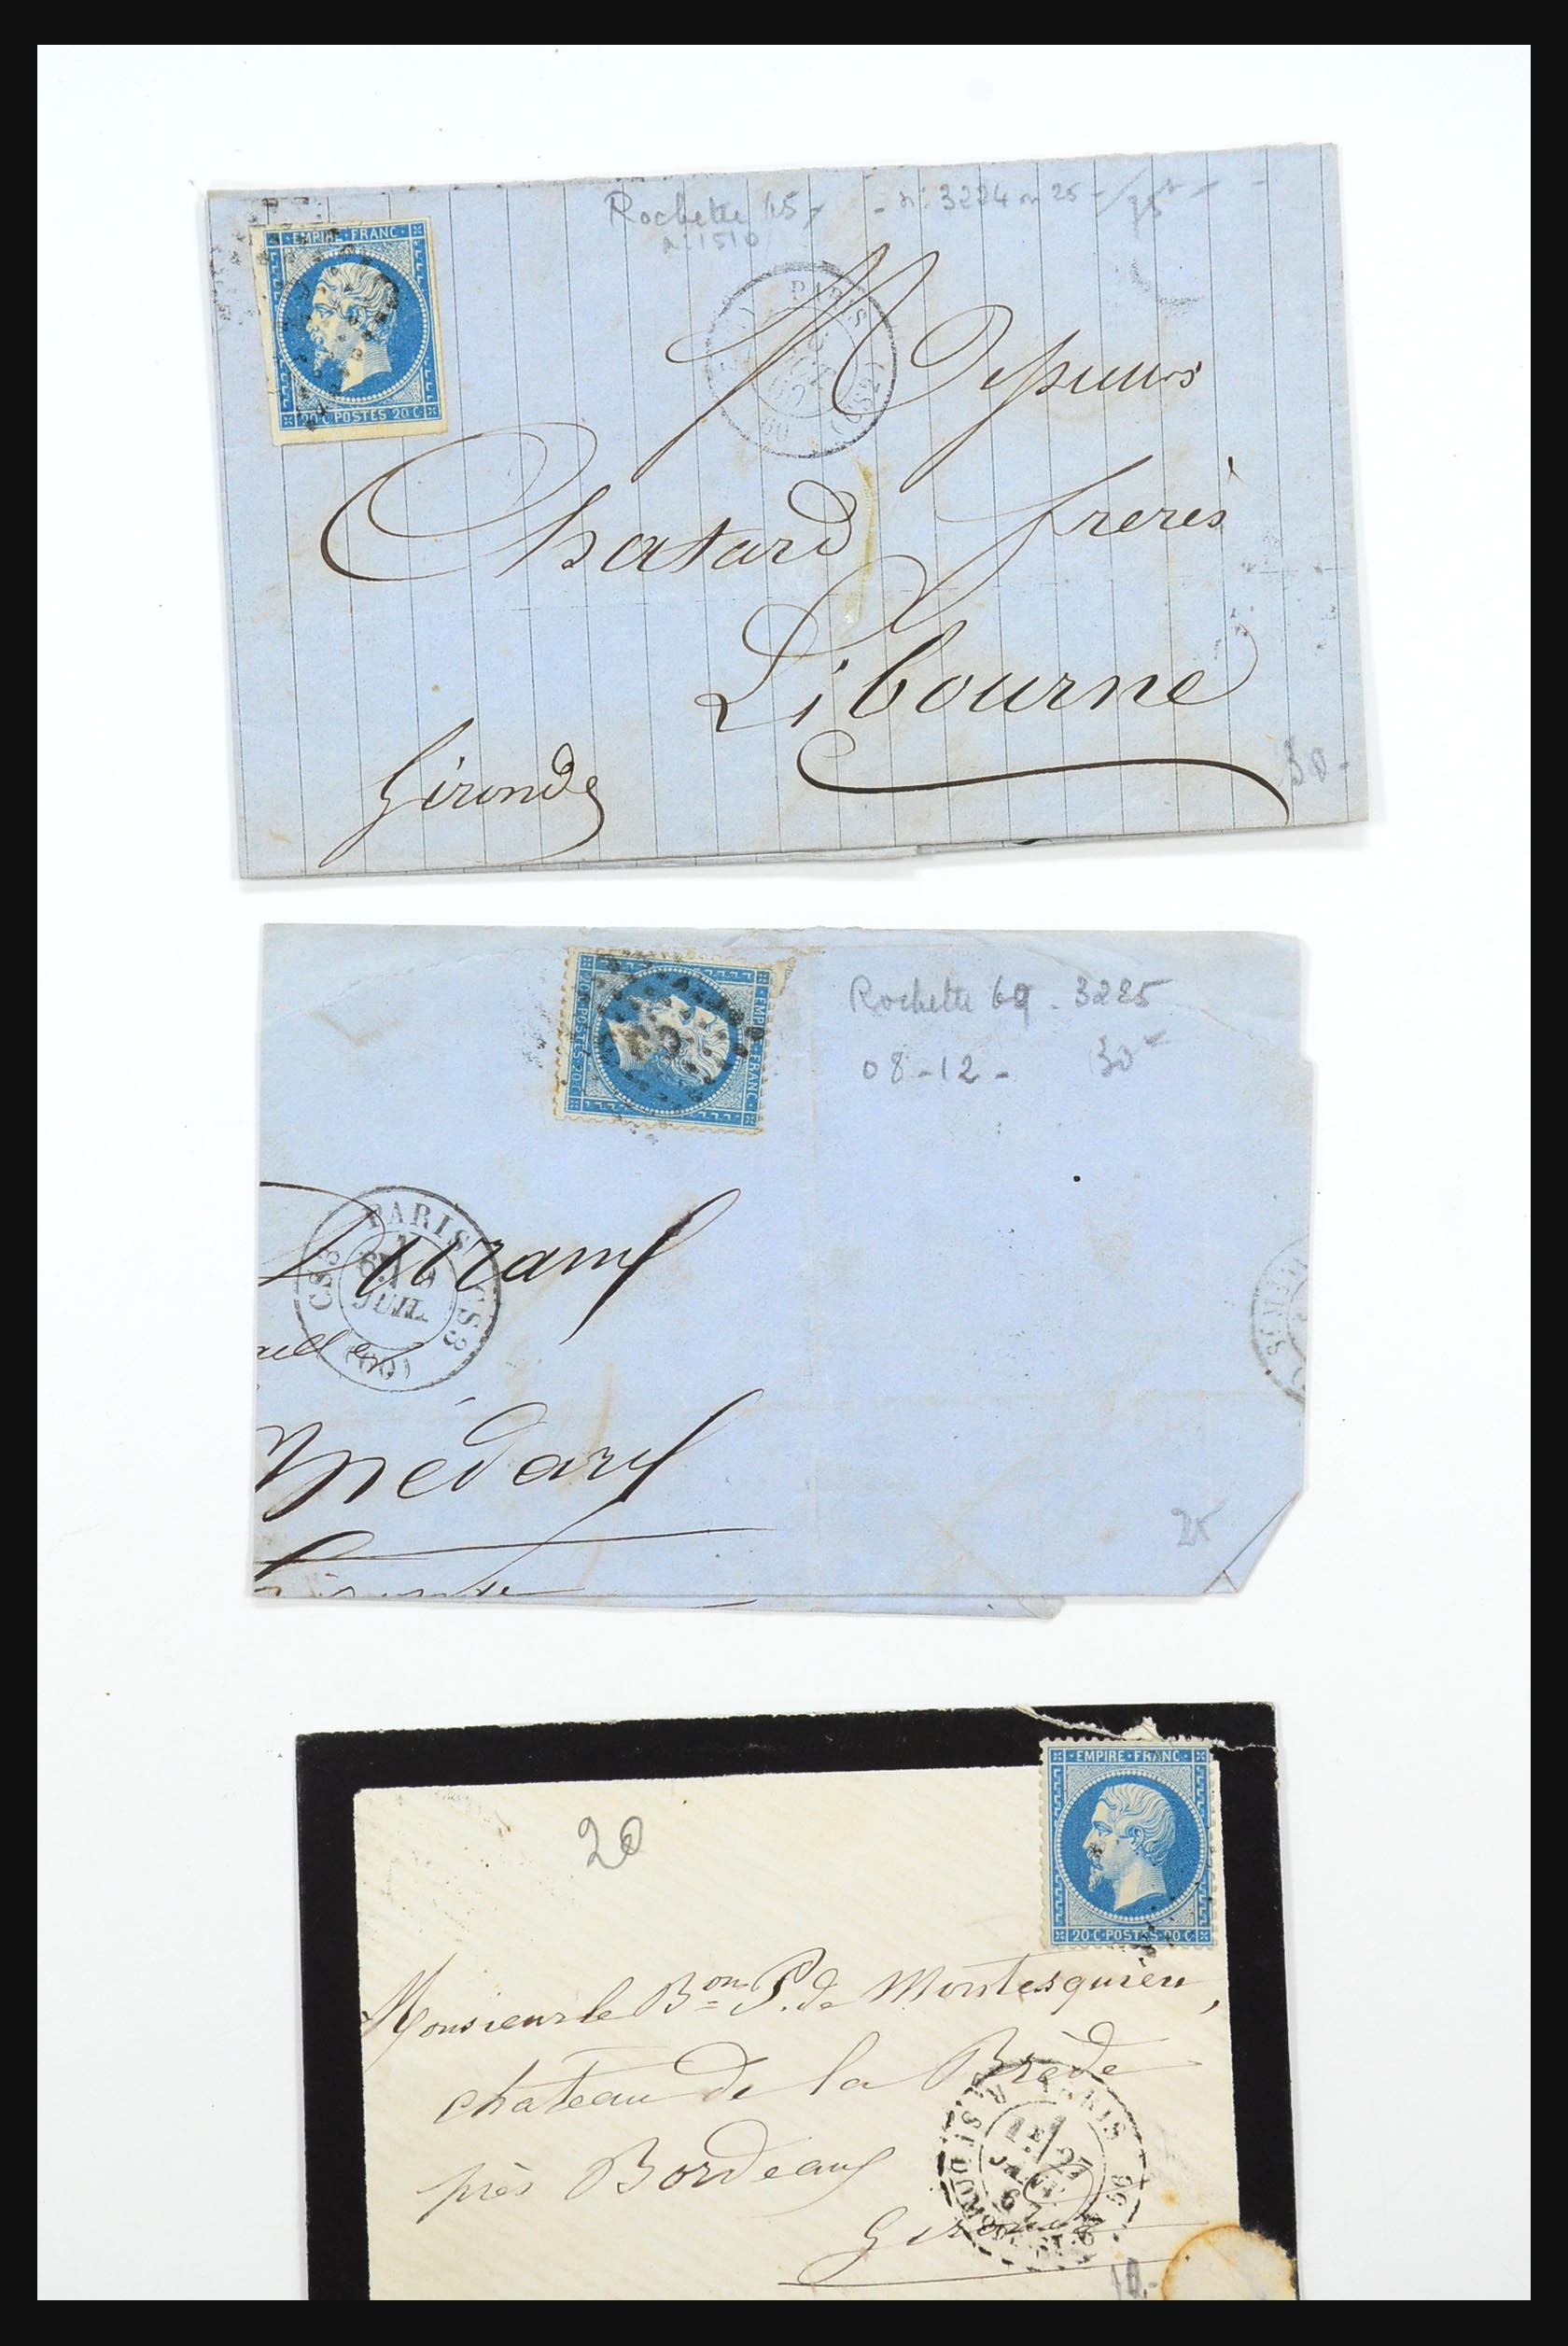 Rochette 45 - n° 3224 on 25 -
n° 1510
EMPIRE · FRANC ·
20 C POSTES 20 C
PARIS
(60)
Messieurs
Chatard freres
Libourne
Gironde
30 -
EMPIRE · FRANC
20 C · POSTES · 20 C
Rochette 69 - 3225
08 - 12 - 30
PARIS
CS3
CS3
JUIL
(60)
Durand
Médard
25
EMPIRE · FRANC
20 · C · POSTES · 20 C
20
Monsieur le Bon P. de Montesquieu,
chateau de la Brède
près Bordeaux
Gironde
PARIS
27
10.-